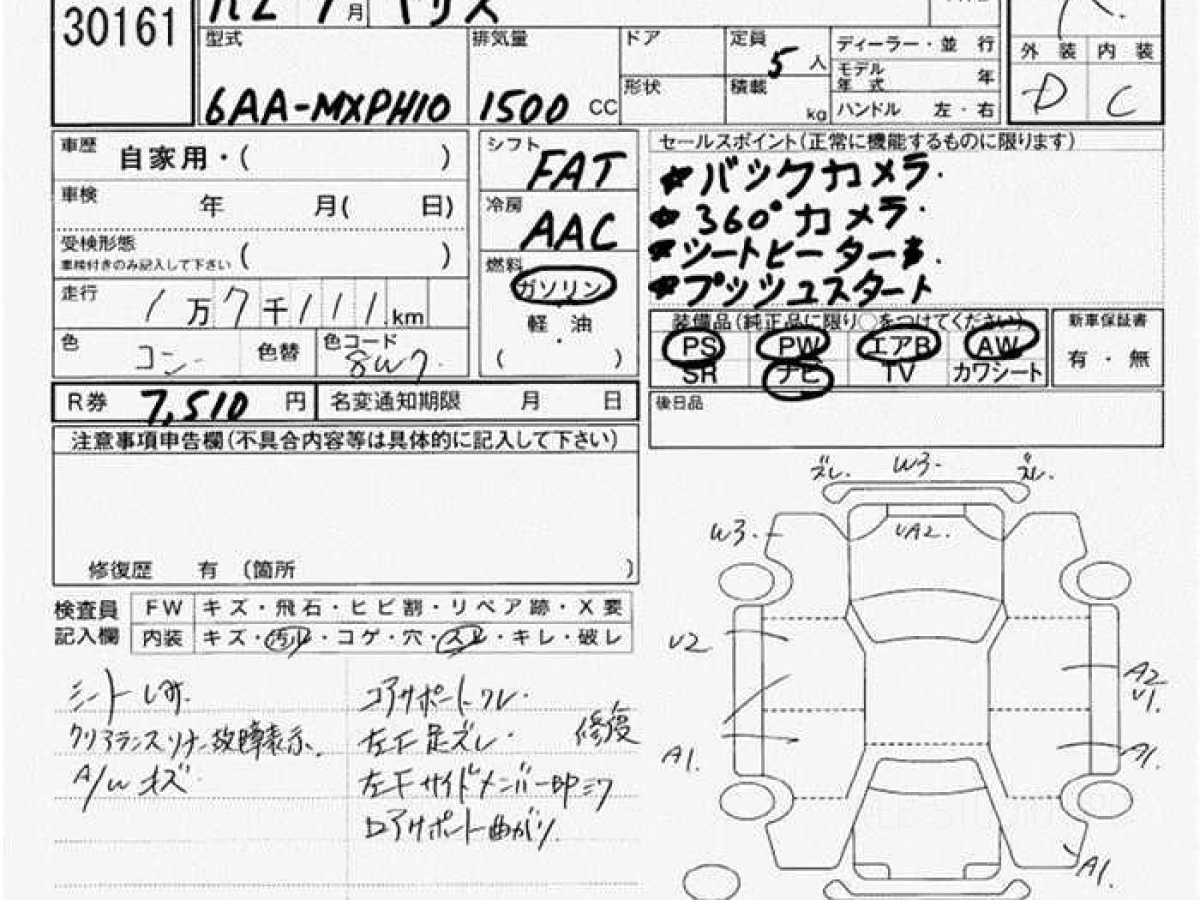 30161
R2 9月 ヤリス
型式 6AA-MXPH10
排気量 1500 CC
ドア
形状
定員 5人
積載 kg
ディーラー・並行
モデル年式 年
ハンドル 左・右
外装 内装
D C
車歴 自家用・( )
車検 年 月( 日)
受検形態 ( )
車検付きのみ記入して下さい
走行 1万7千111km
色 コン 色替 色コード 8W7.
シフト FAT
冷房 AAC
燃料
ガソリン
軽油
・
( )
セールスポイント(正常に機能するものに限ります)
バックカメラ.
360°カメラ.
シートヒーター
プッシュスタート
装備品(純正品に限り○をつけてください)
PS PW エアB AW
SR ナビ TV カワシート
新車保証書
有・無
後日品
R券 7,510 円 名変通知期限 月 日
注意事項申告欄(不具合内容等は具体的に記入して下さい)
修復歴 有 (箇所 )
検査員記入欄
FW キズ・飛石・ヒビ割・リペア跡・X要
内装 キズ・汚れ・コゲ・穴・スレ・キレ・破レ
クリアランスソナー故障表示.
A/W キズ
コアサポートズレ.
左F足ズレ. 修復
左Fサイドメンバー
ロアサポート曲がり.
ズレ. W3. ズレ.
W3.
UA2.
U2
A2
U1.
A1.
A1.
A1.